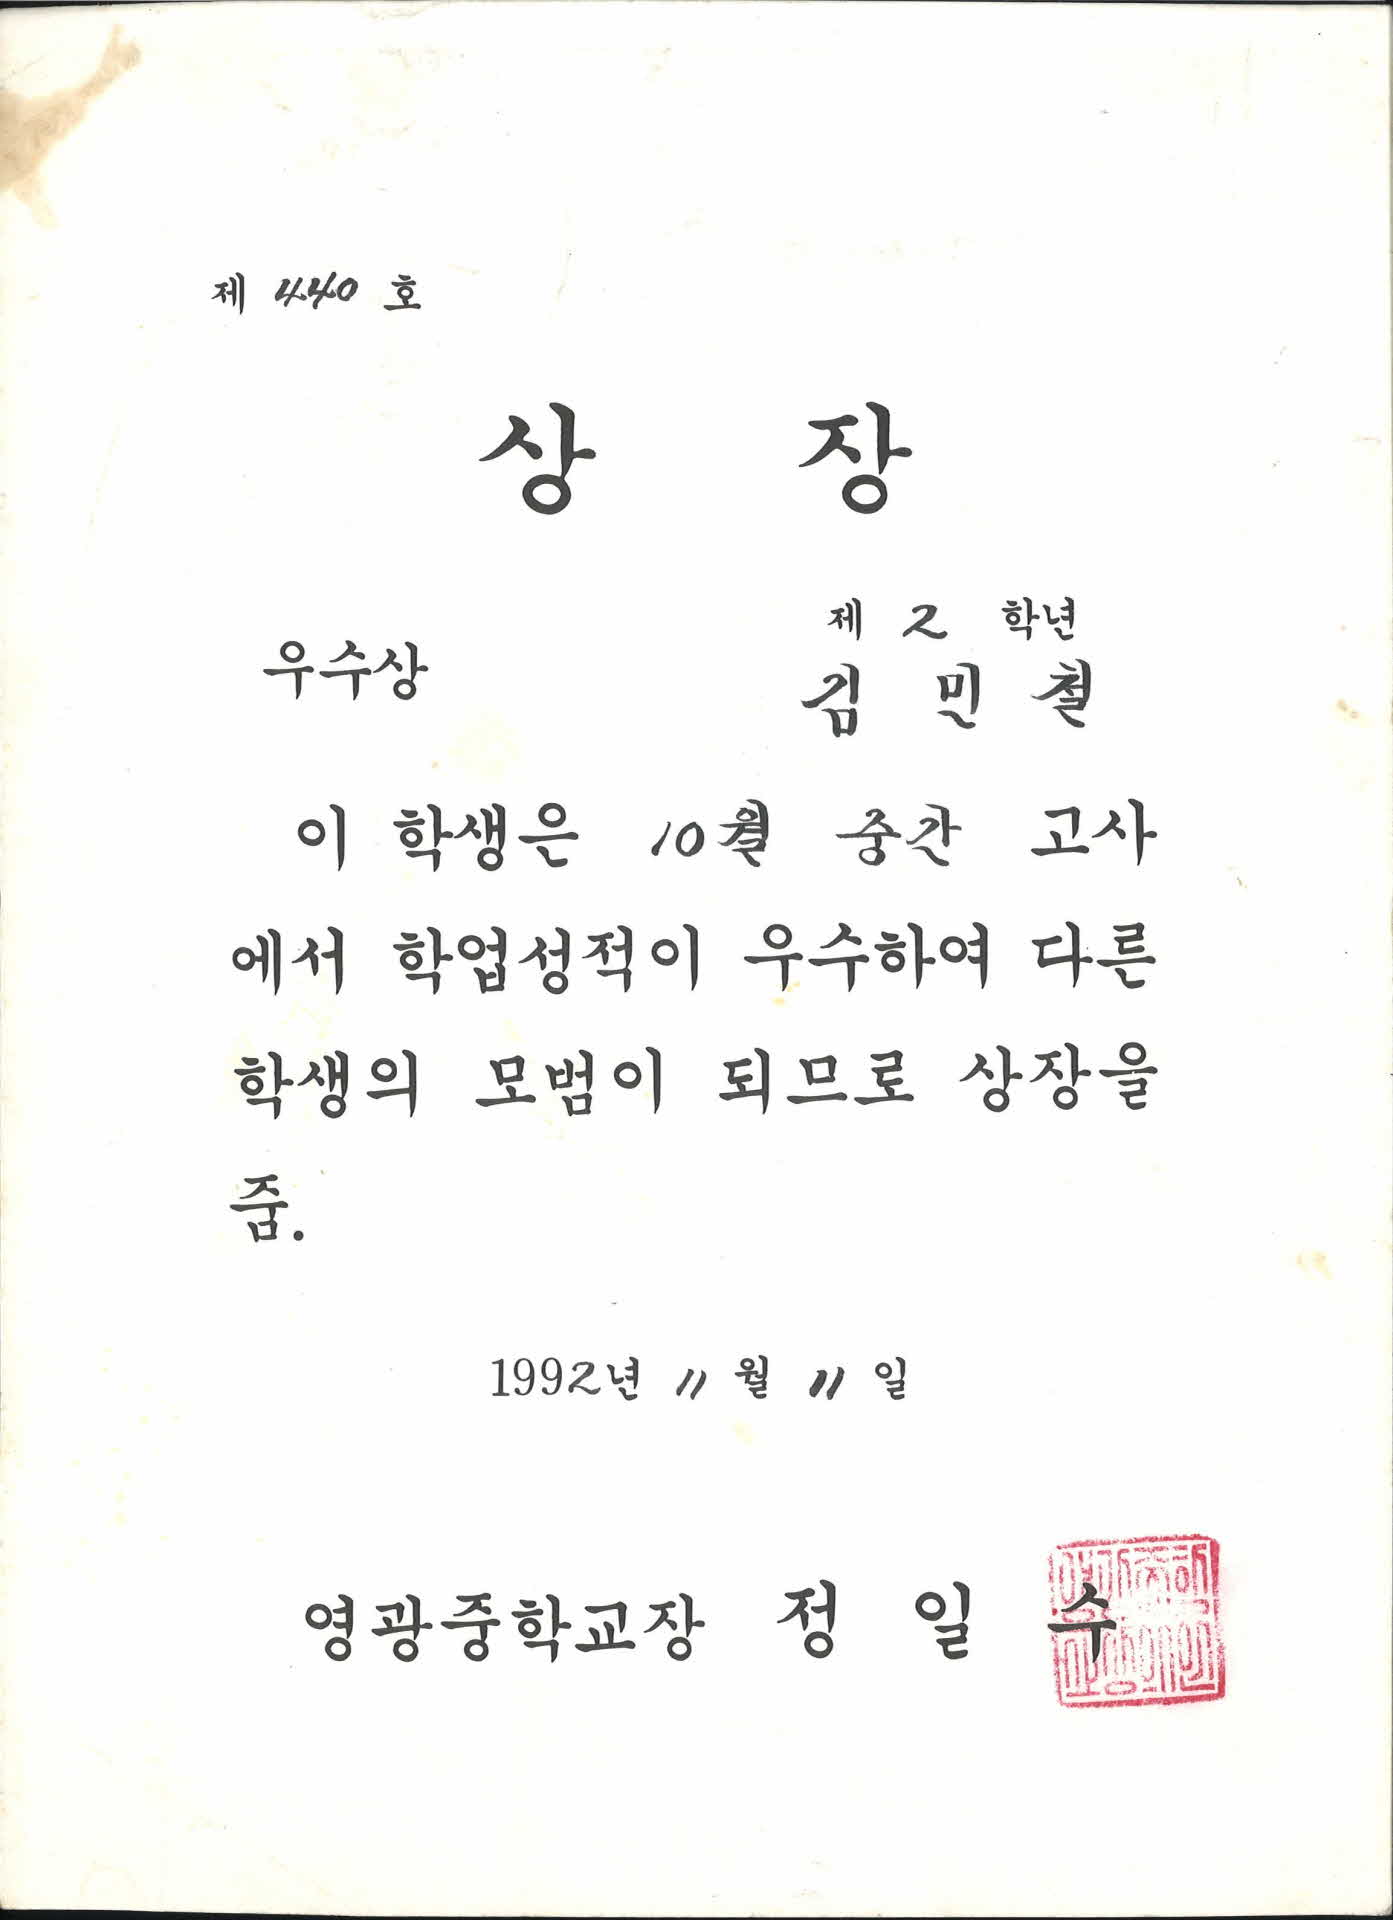 제 440 호
상 장
제 2 학년
우수상
김 민 철
이 학생은 10월 중간 고사
에서 학업성적이 우수하여 다른
학생의 모범이 되므로 상장을
줌.
1992년 11월 11일
영광중학교장 정 일 수